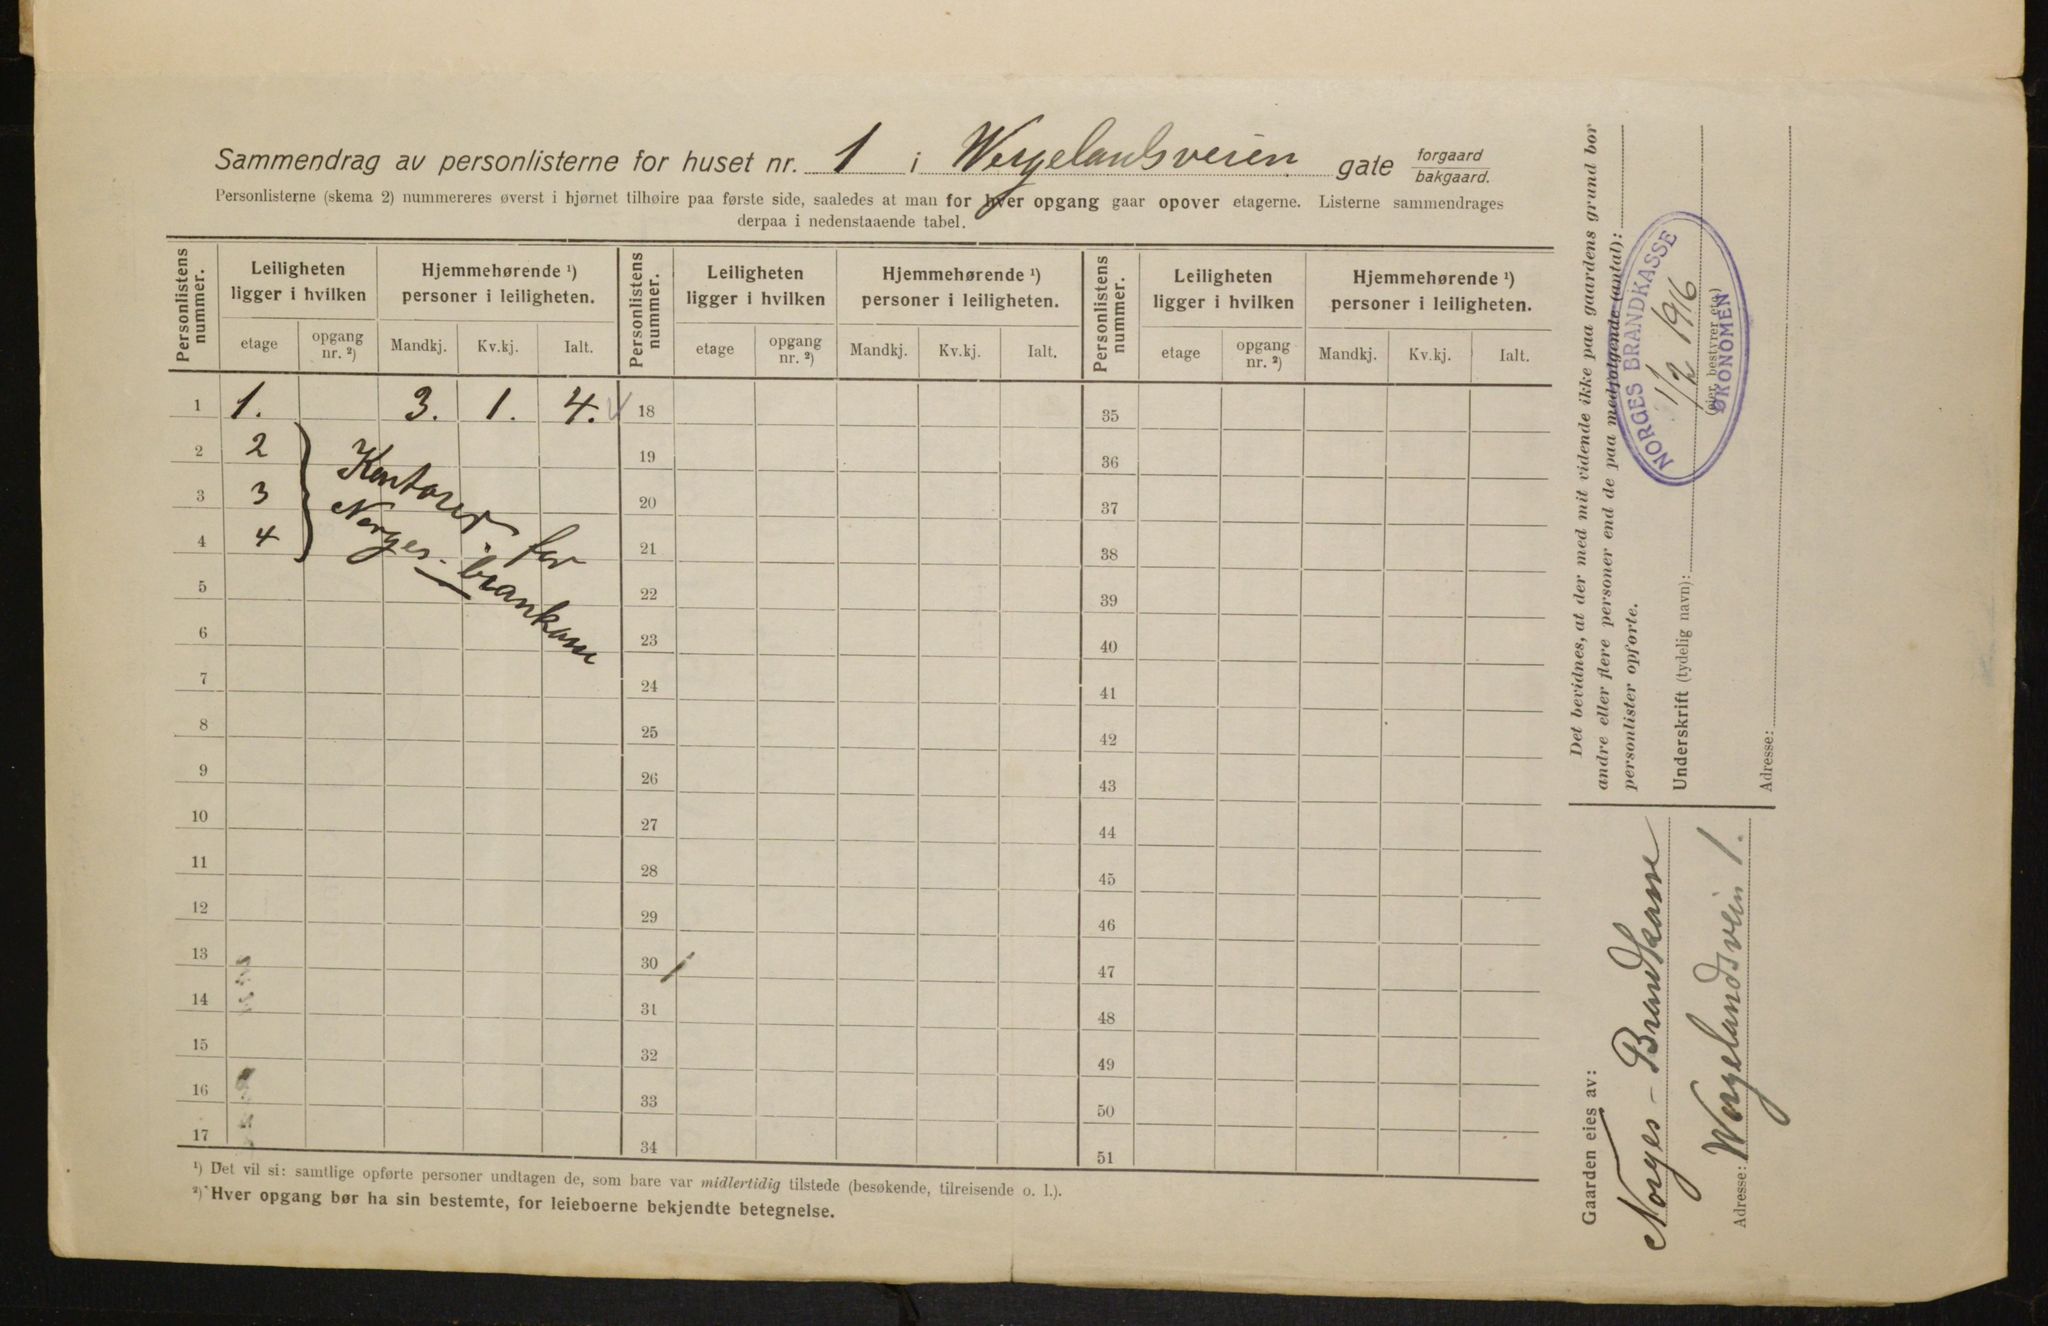 Sammendrag av personlisterne for huset nr. 1 i Wergelandsveien gate forgaard bakgaard.
Personlisterne (skema 2) nummereres øverst i hjørnet tilhøire paa første side, saaledes at man for hver opgang gaar opover etagerne. Listerne sammendrages
derpaa i nedenstaaende tabel.
Personlistens nummer. Leiligheten ligger i hvilken Hjemmehørende ¹) personer i leiligheten. Personlistens nummer. Leiligheten ligger i hvilken Hjemmehørende ¹) personer i leiligheten. Personlistens nummer. Leiligheten ligger i hvilken Hjemmehørende ¹) personer i leiligheten.
etage opgang nr. ²) Mandkj. Kv.kj. Ialt. etage opgang nr. ²) Mandkj. Kv.kj. Ialt. etage opgang nr. ²) Mandkj. Kv.kj. Ialt.
1 1. 3. 1. 4. 18 35
2 2 19 36
3 3 20 37
4 4 21 38
Kontorer for
Norges brankasse
5 22 39
6 23 40
7 24 41
8 25 42
9 26 43
10 27 44
11 28 45
12 29 46
13 30 47
14 31 48
15 32 49
16 33 50
17 34 51
¹) Det vil si: samtlige opførte personer undtagen de, som bare var midlertidig tilstede (besøkende, tilreisende o. l.).
²) Hver opgang bør ha sin bestemte, for leieboerne bekjendte betegnelse.
Det bevidnes, at der med mit vidende ikke paa gaardens grund bor
andre eller flere personer end de paa medfølgende (antal):
personlister opførte.
Underskrift (tydelig navn):
(eier, bestyrer etc.)
Adresse:
NORGES BRANDKASSE
1/2 1916
ØKONOMEN
Gaarden eies av:
Norges - Brandkasse
Adresse: Wergelandsveien 1.